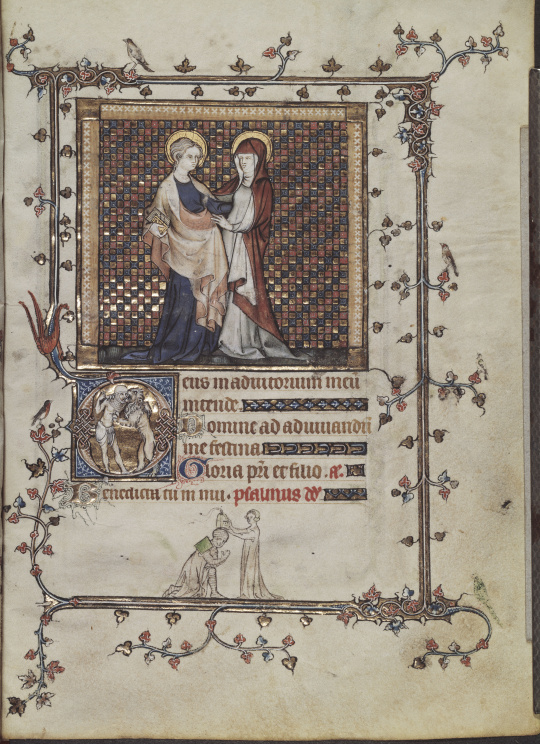 eus in adiutorium meu
intende
Domine ad adiuuandu
me festina
Gloria pri et filio. &.
Benedicta tu in mu. psalmus dd